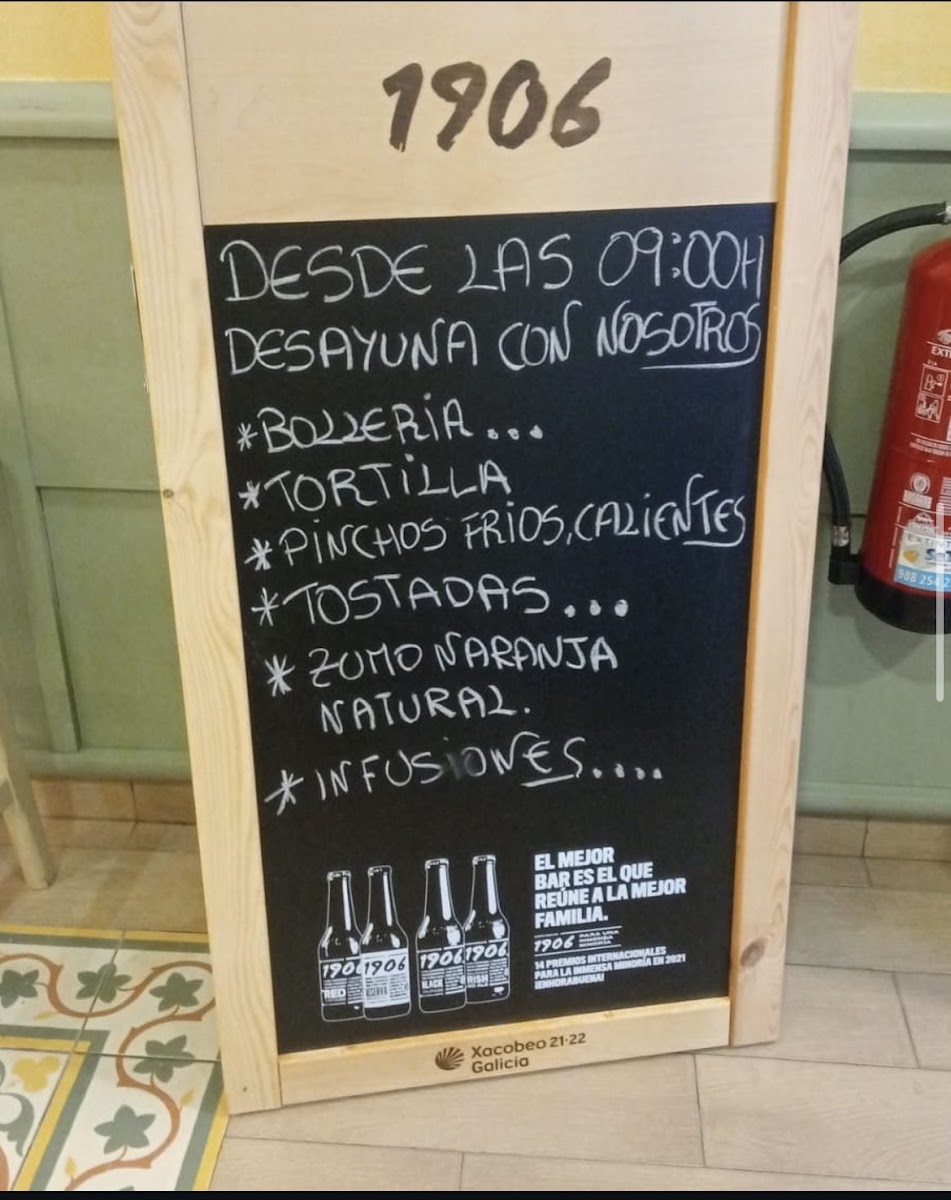 1906
DESDE LAS 09:00H
DESAYUNA CON NOSOTROS
*BOLLERIA...
*TORTILLA
*PINCHOS FRIOS, CALIENTES
*TOSTADAS...
* ZUMO NARANJA
NATURAL.
*INFUSIONES....
EL MEJOR
BAR ES EL QUE
REÚNE A LA MEJOR
FAMILIA.
1906 PARA UNA
INMENSA
MINORÍA
14 PREMIOS INTERNACIONALES
PARA LA INMENSA MINORÍA EN 2021
¡ENHORABUENA!
1906 1906 1906 1906
RED RESERVA BLACK IRISH
Xacobeo 21·22
Galicia
EXT
988 254 2